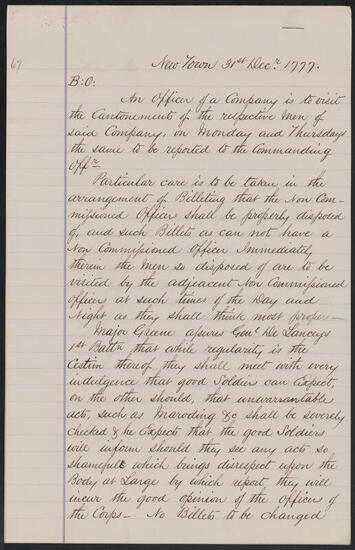 69
New Town 31st Decr 1777.
B:O:
An Officer of a Company is to visit
the Cantonements of the respective Men of
said Company, on Monday and Thursdays
the same to be reported to the Commanding
Offr
Particular care is to be taken in the
arrangement of Billeting that the Non Com-
missioned Officer shall be properly disposed
of, and such Billets as can not have a
Non Commissioned Officer Immediately
therein the Men so disposed of are to be
visited by the adjacent Non Commissioned
officers at such times of the Day and
Night as they shall think most proper—
Major Greene assures Genl De Lanceys
1st Battn that while regularity is the
thereof they shall meet with every
indulgence that good Soldiers can Expect,
on the other should, that unwarrantable
acts, such as Maroding &c shall be severely
checked & he Expects that the good Soldiers
will inform should they see any acts so
shamefull which brings disrespect upon the
Body at Large by which report, they will
incur the good opinion of the officers of
the Corps— No Billets to be changed